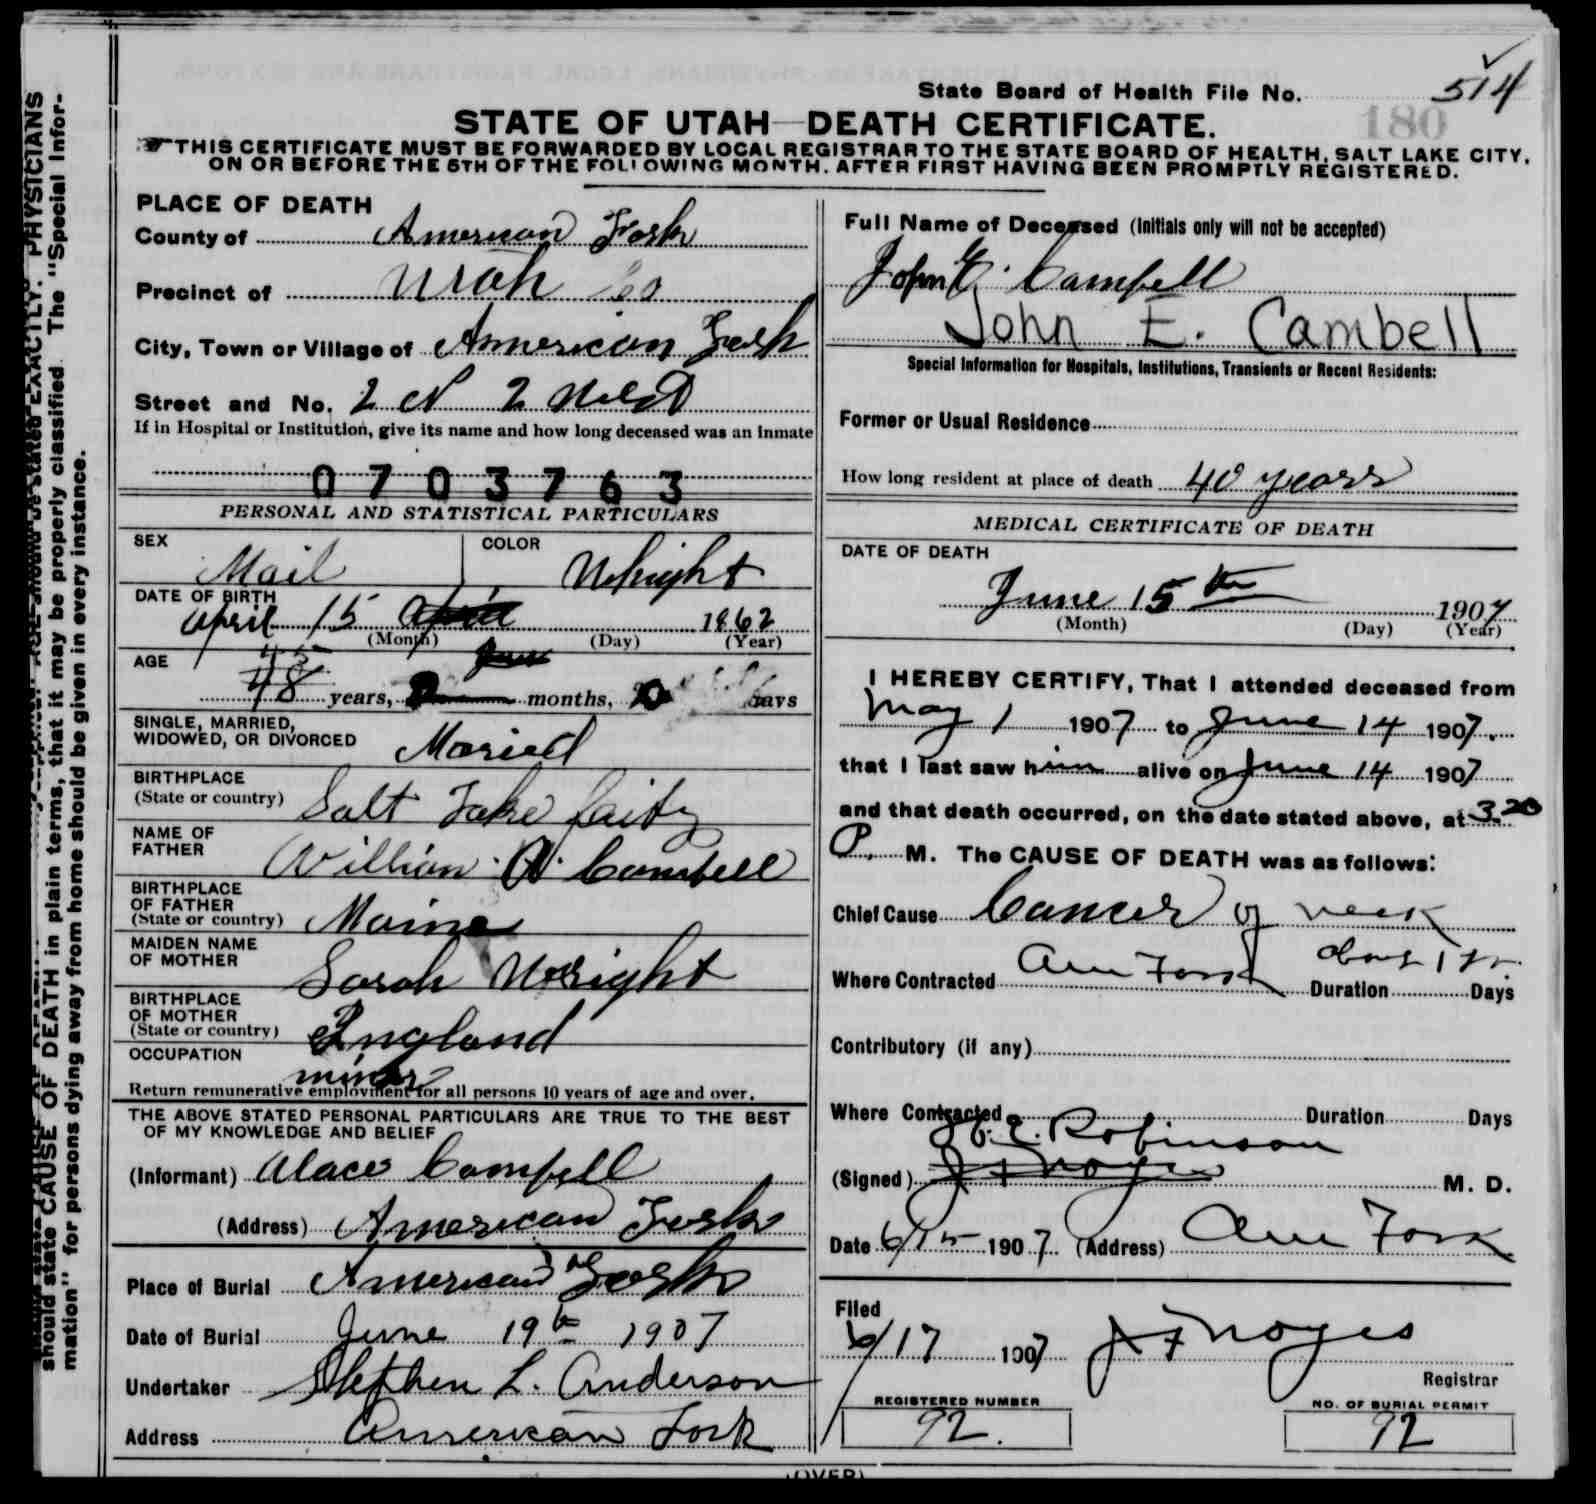 State Board of Health File No. 514
180
STATE OF UTAH—DEATH CERTIFICATE.
THIS CERTIFICATE MUST BE FORWARDED BY LOCAL REGISTRAR TO THE STATE BOARD OF HEALTH, SALT LAKE CITY,
ON OR BEFORE THE 5TH OF THE FOLLOWING MONTH, AFTER FIRST HAVING BEEN PROMPTLY REGISTERED.
PLACE OF DEATH
County of American Fork
Precinct of Utah Co
City, Town or Village of American Fork
Street and No. 2 N 2 West
If in Hospital or Institution, give its name and how long deceased was an inmate
0703763
PERSONAL AND STATISTICAL PARTICULARS
SEX Mail COLOR Whright
DATE OF BIRTH
April 15 1862
(Month) (Day) (Year)
45
AGE 48 years, months, days
SINGLE, MARRIED,
WIDOWED, OR DIVORCED Maried
BIRTHPLACE
(State or country) Salt Lake Caity
NAME OF
FATHER William W. Cambell
BIRTHPLACE
OF FATHER
(State or country) Maine
MAIDEN NAME
OF MOTHER Sarah Wright
BIRTHPLACE
OF MOTHER
(State or country) England
OCCUPATION miner
Return remunerative employment for all persons 10 years of age and over.
THE ABOVE STATED PERSONAL PARTICULARS ARE TRUE TO THE BEST
OF MY KNOWLEDGE AND BELIEF
(Informant) Alace Campell
(Address) American Fork
Place of Burial American Fork
Date of Burial June 19th 1907
Undertaker Stephen L. Anderson
Address American Fork
Full Name of Deceased (Initials only will not be accepted)
John E. Campell
John E. Cambell
Special Information for Hospitals, Institutions, Transients or Recent Residents:
Former or Usual Residence
How long resident at place of death 40 years
MEDICAL CERTIFICATE OF DEATH
DATE OF DEATH
June 15th 1907
(Month) (Day) (Year)
I HEREBY CERTIFY, That I attended deceased from
May 1 1907 to June 14 1907.
that I last saw him alive on June 14 1907
and that death occurred, on the date stated above, at 3.20
P. M. The CAUSE OF DEATH was as follows:
Chief Cause Cancer of neck
Where Contracted Am Fork Duration about 1 yr. Days
Contributory (if any)
Where Contracted Duration Days
Robinson
(Signed) J F Noyes M. D.
Date 6/15 1907 (Address) Am Fork
Filed
6/17 1907 J F Noyes
Registrar
REGISTERED NUMBER
92.
NO. OF BURIAL PERMIT
92
(OVER)
should state CAUSE OF DEATH in plain terms, that it may be properly classified. The "Special Infor-
mation" for persons dying away from home should be given in every instance.